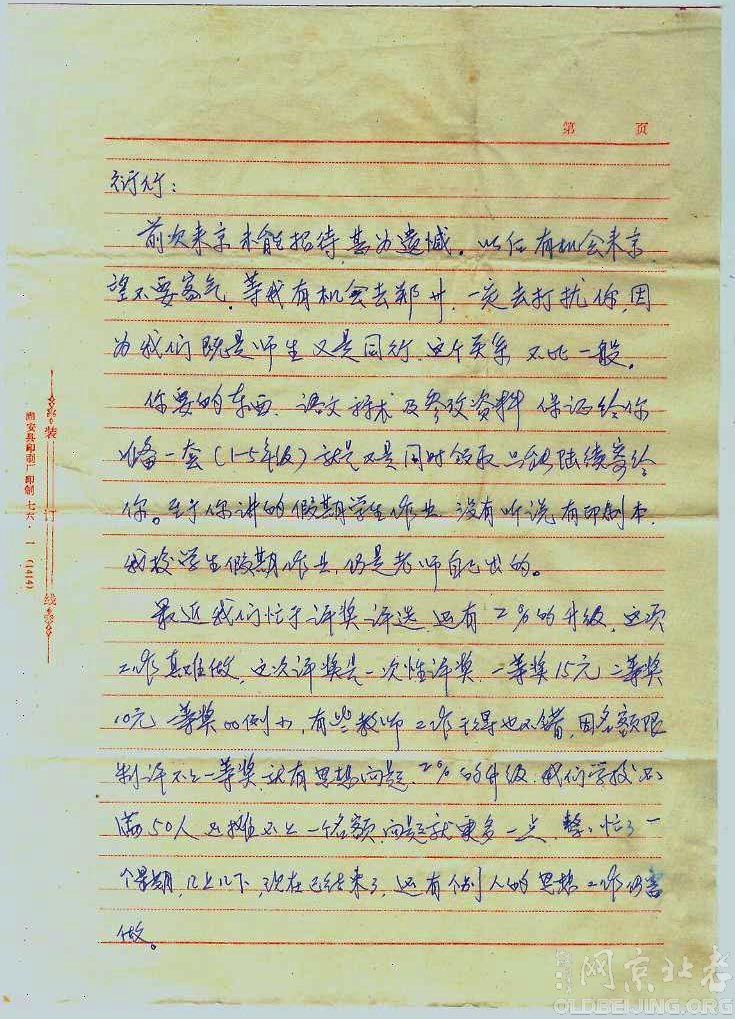 第 页
前次来京未能招待,甚为遗憾。以后有机会来京,
望不要客气。等我有机会去郑州,一定去打扰你,因
为我们既是师生又是同行,这个关系不比一般。
你要的东西,语文课本及参考资料保证给你
准备一套(1-5年级)就是不是同时领取只能陆续寄给
你。至于你讲的假期学生作业,没有听说有印制本,
我校学生假期作业,仍是老师自己出的。
最近我们忙于评奖评选,还有2%的升级,这项
工作真难做,这次评奖是一次性评奖,一等奖15元二等奖
10元一等奖的比例小,有些教师工作干得也不错,因名额限
制评不上一等奖,就有思想问题,2%的升级,我们学校不
满50人还摊不上一个名额,问题就更多一点,整整忙了一
个星期,几上几下,现在已结束了,还有个别人的思想工作仍需
做。
装 订 线
潮安县印刷厂印制 七六.1 (1414)
老北京网
OLDBEIJING.ORG